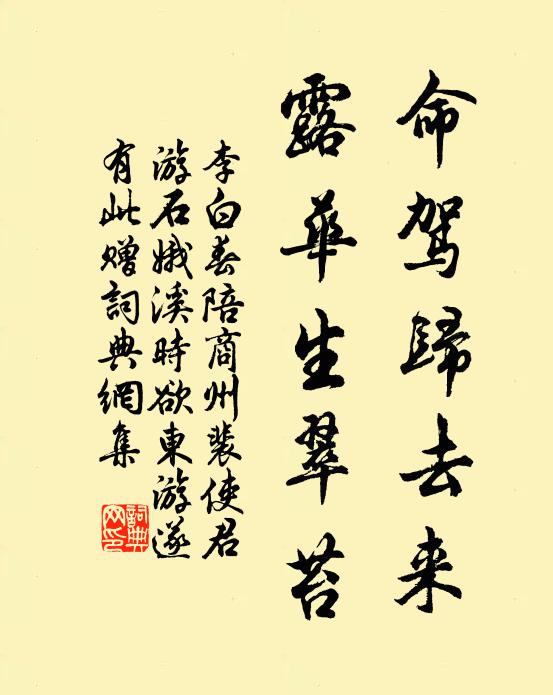 命驾歸去来
露華生翠苔
李白春陪商州裴使君
游石娥溪時欲東游遂
有此贈詞典網集
詞典網印